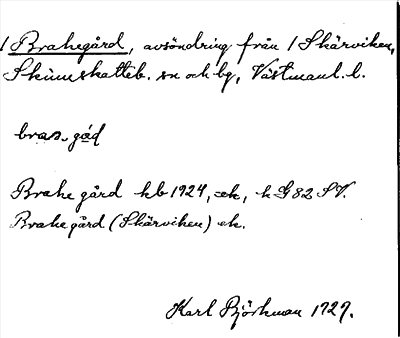 1 Brahegård, avsöndring från 1 Skärviken,
Skinnskatteb. sn och bg, Västmanl. l.
bra.n. gád
Brahe gård kb 1924, =ek, k G82 SV.
Brahe gård (Skärviken) ek.
Karl Björkman 1727.